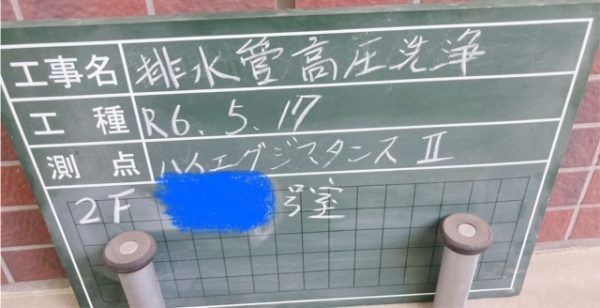 工事名 排水管高圧洗浄
工種 R6.5.17
測点 ハイエグジスタンスⅡ
2F 号室